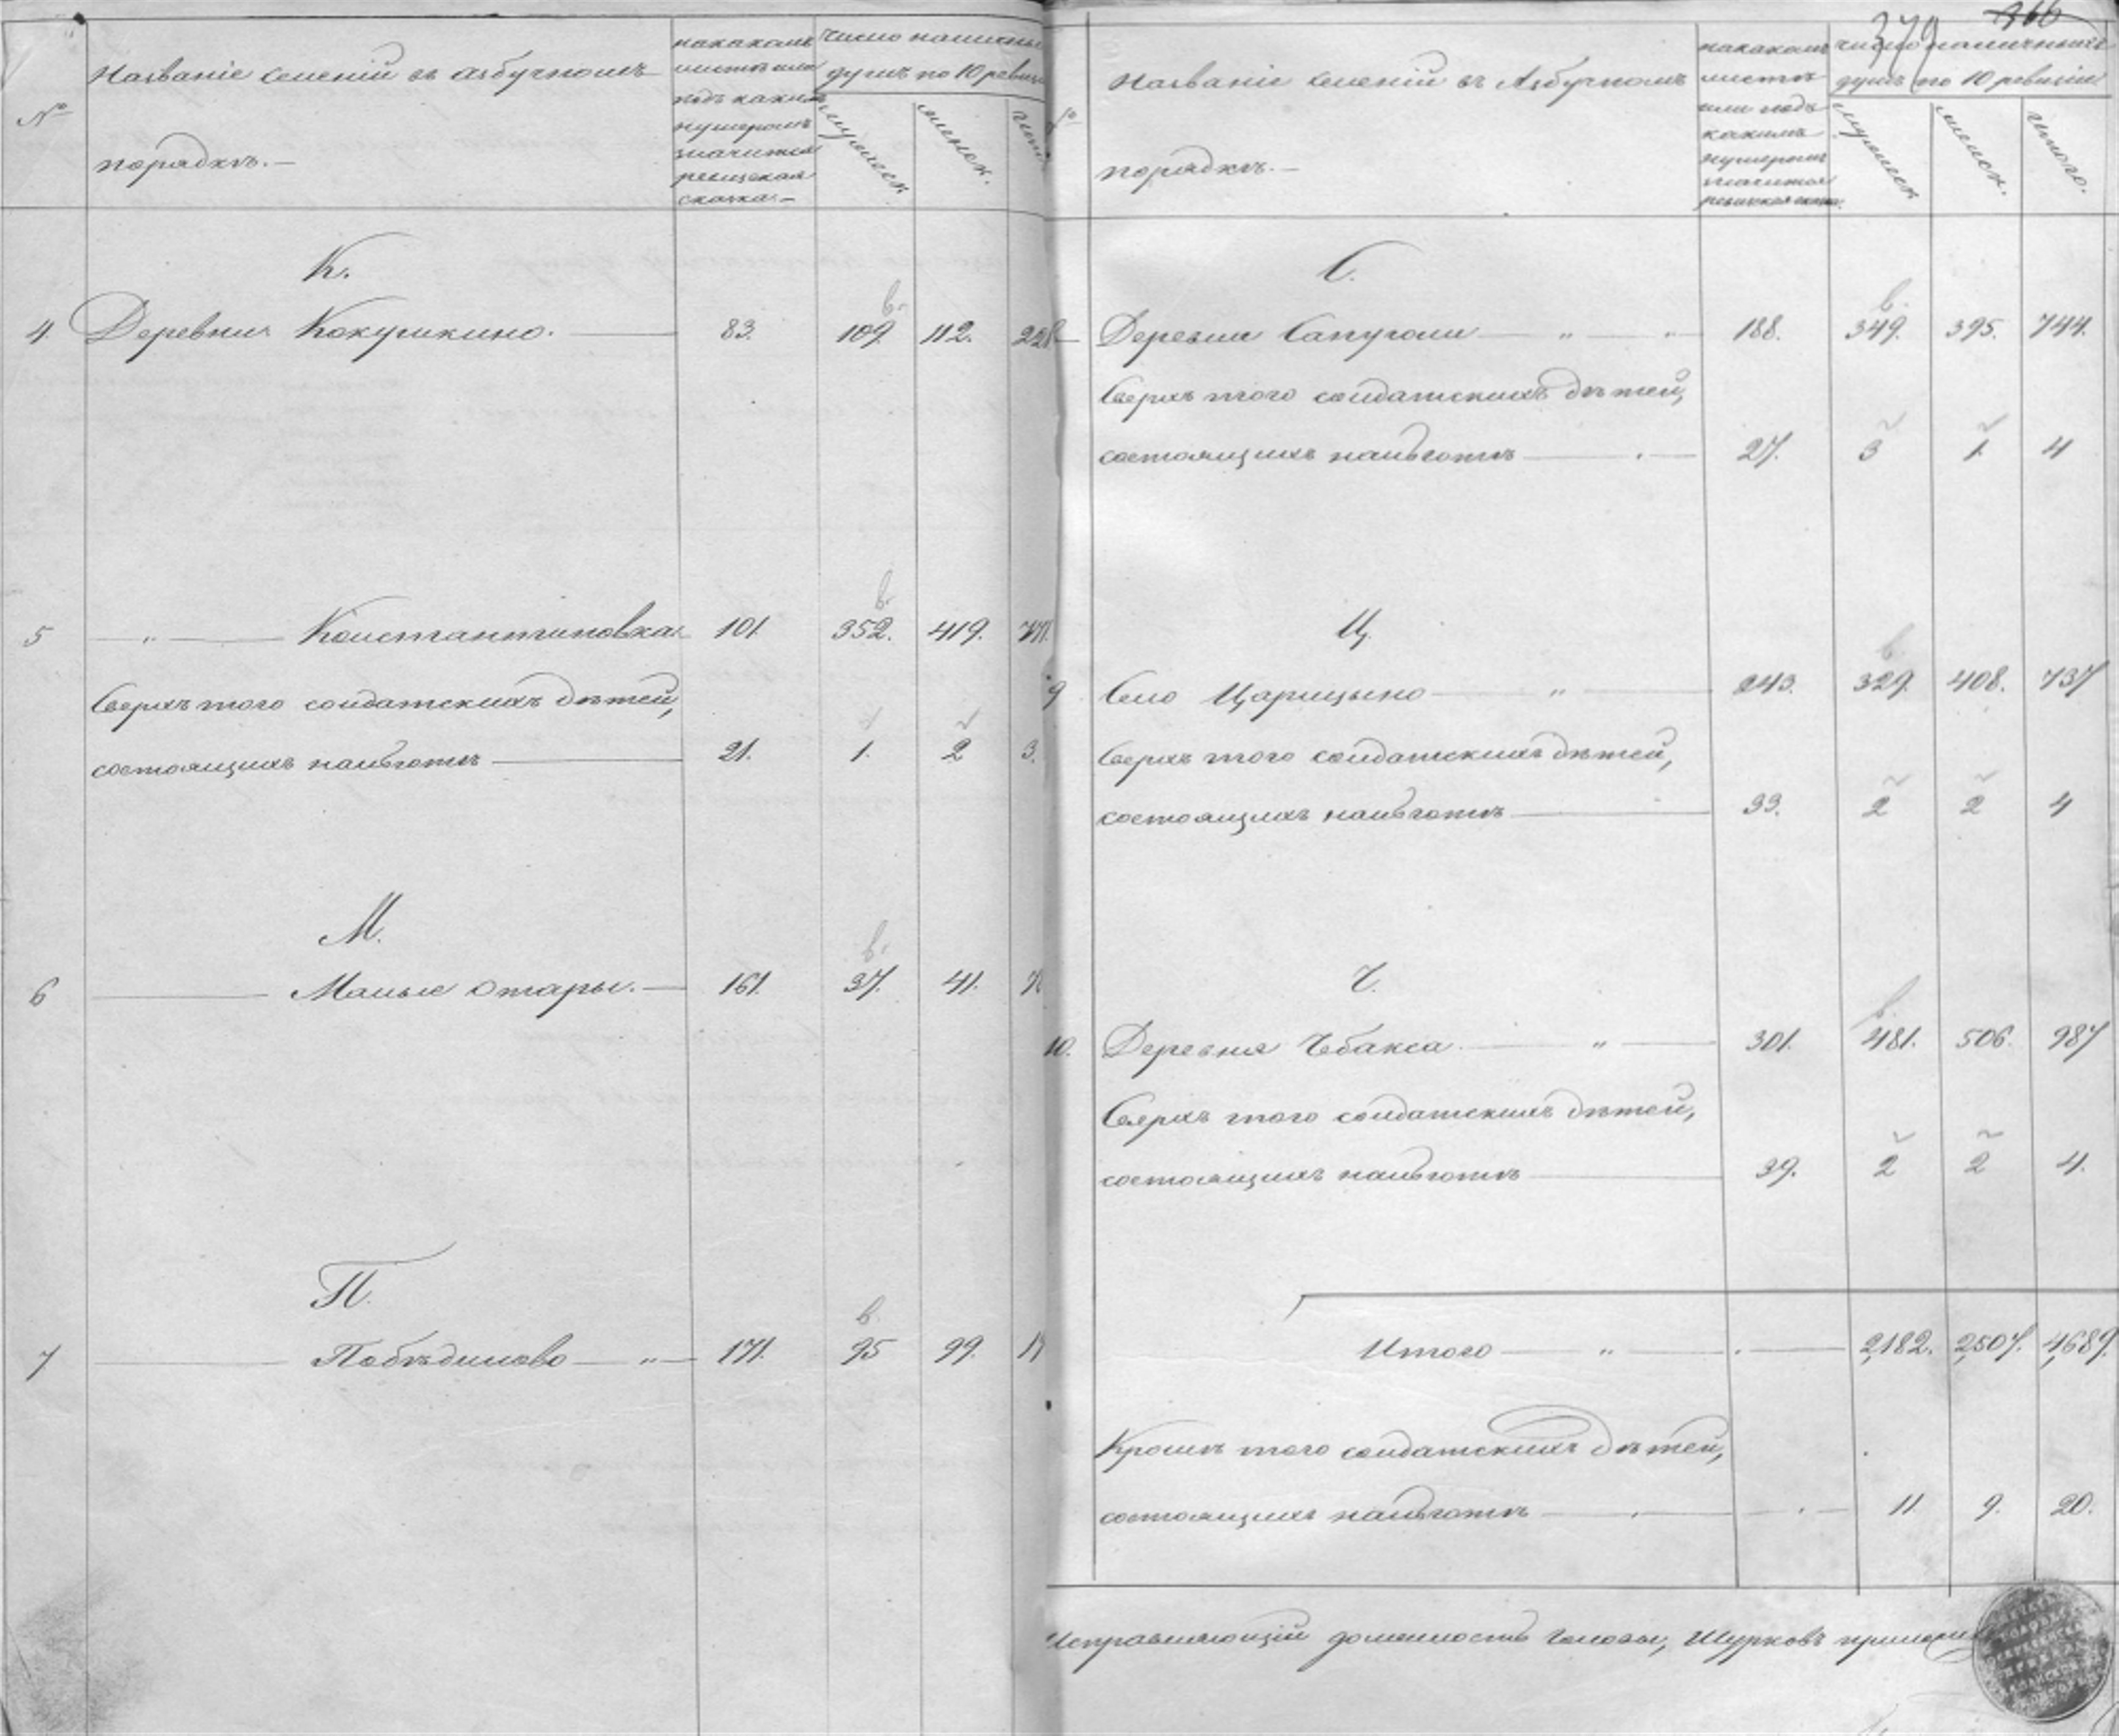 №
Названіе селеній въ азбучномъ
порядкѣ.—
на какомъ
листѣ или
подъ какимъ
нумеромъ
значится
ревизская
сказка.—
Число наличны
душъ по 10 ревизі
мужеск.
женск.
К.
4. Деревня Кокушкино. 83. 109. 112. 22
5 „ Константиновка. 101. 352. 419. 771.
Сверхъ того солдатскихъ дѣтей,
состоящихъ на льготѣ 21. 1. 2 3.
М.
6 Малые Отары. 161. 37. 41. 7
П.
7 Побѣдилово „ 171. 95 99. 1
379 366
№
Названіе селеній въ Азбучномъ
порядкѣ.—
на какомъ
листѣ
или подъ
какимъ
нумеромъ
значится
ревизская сказка.
число наличныхъ
душъ по 10 ревизіи
мужеск.
женск.
итого.
С.
Деревни Сапуголи „ 188. 349. 395. 744.
Сверхъ того солдатскихъ дѣтей,
состоящихъ на льготѣ 27. 3 1. 4
Ц.
9 Село Царицыно „ 243. 329. 408. 737
Сверхъ того солдатскихъ дѣтей,
состоящихъ на льготѣ 33. 2 2 4
Ч.
10. Деревня Чебакса. „ 301. 481. 506. 987
Сверхъ того солдатскихъ дѣтей,
состоящихъ на льготѣ 39. 2 2 4.
Итого „ 2,182. 2,507. 4,689.
Кромѣ того солдатскихъ дѣтей,
состоящихъ на льготѣ 11. 9. 20.
Исправляющій должность Головы, Шурковъ